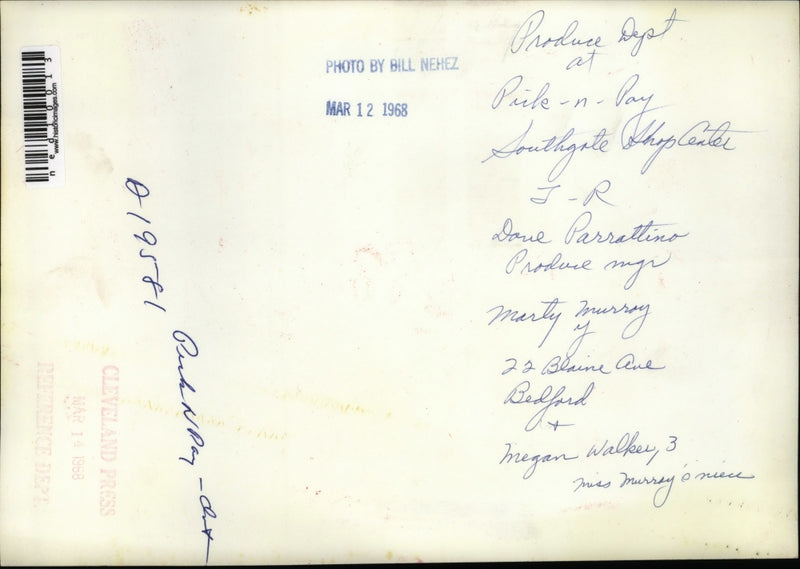 Produce Dept
at
Pick-n-Pay
Southgate Shop Center
J-R
Dave Parrattino
Produce mgr
Marty Murray
of
22 Blaine Ave
Bedford
+
Megan Walker, 3
Miss Murray's niece
PHOTO BY BILL NEHEZ
MAR 12 1968
ned00013
www.historicimages.com
D-19581
Pick N Pay -
CLEVELAND PRESS
MAR 14 1968
REFERENCE DEPT.